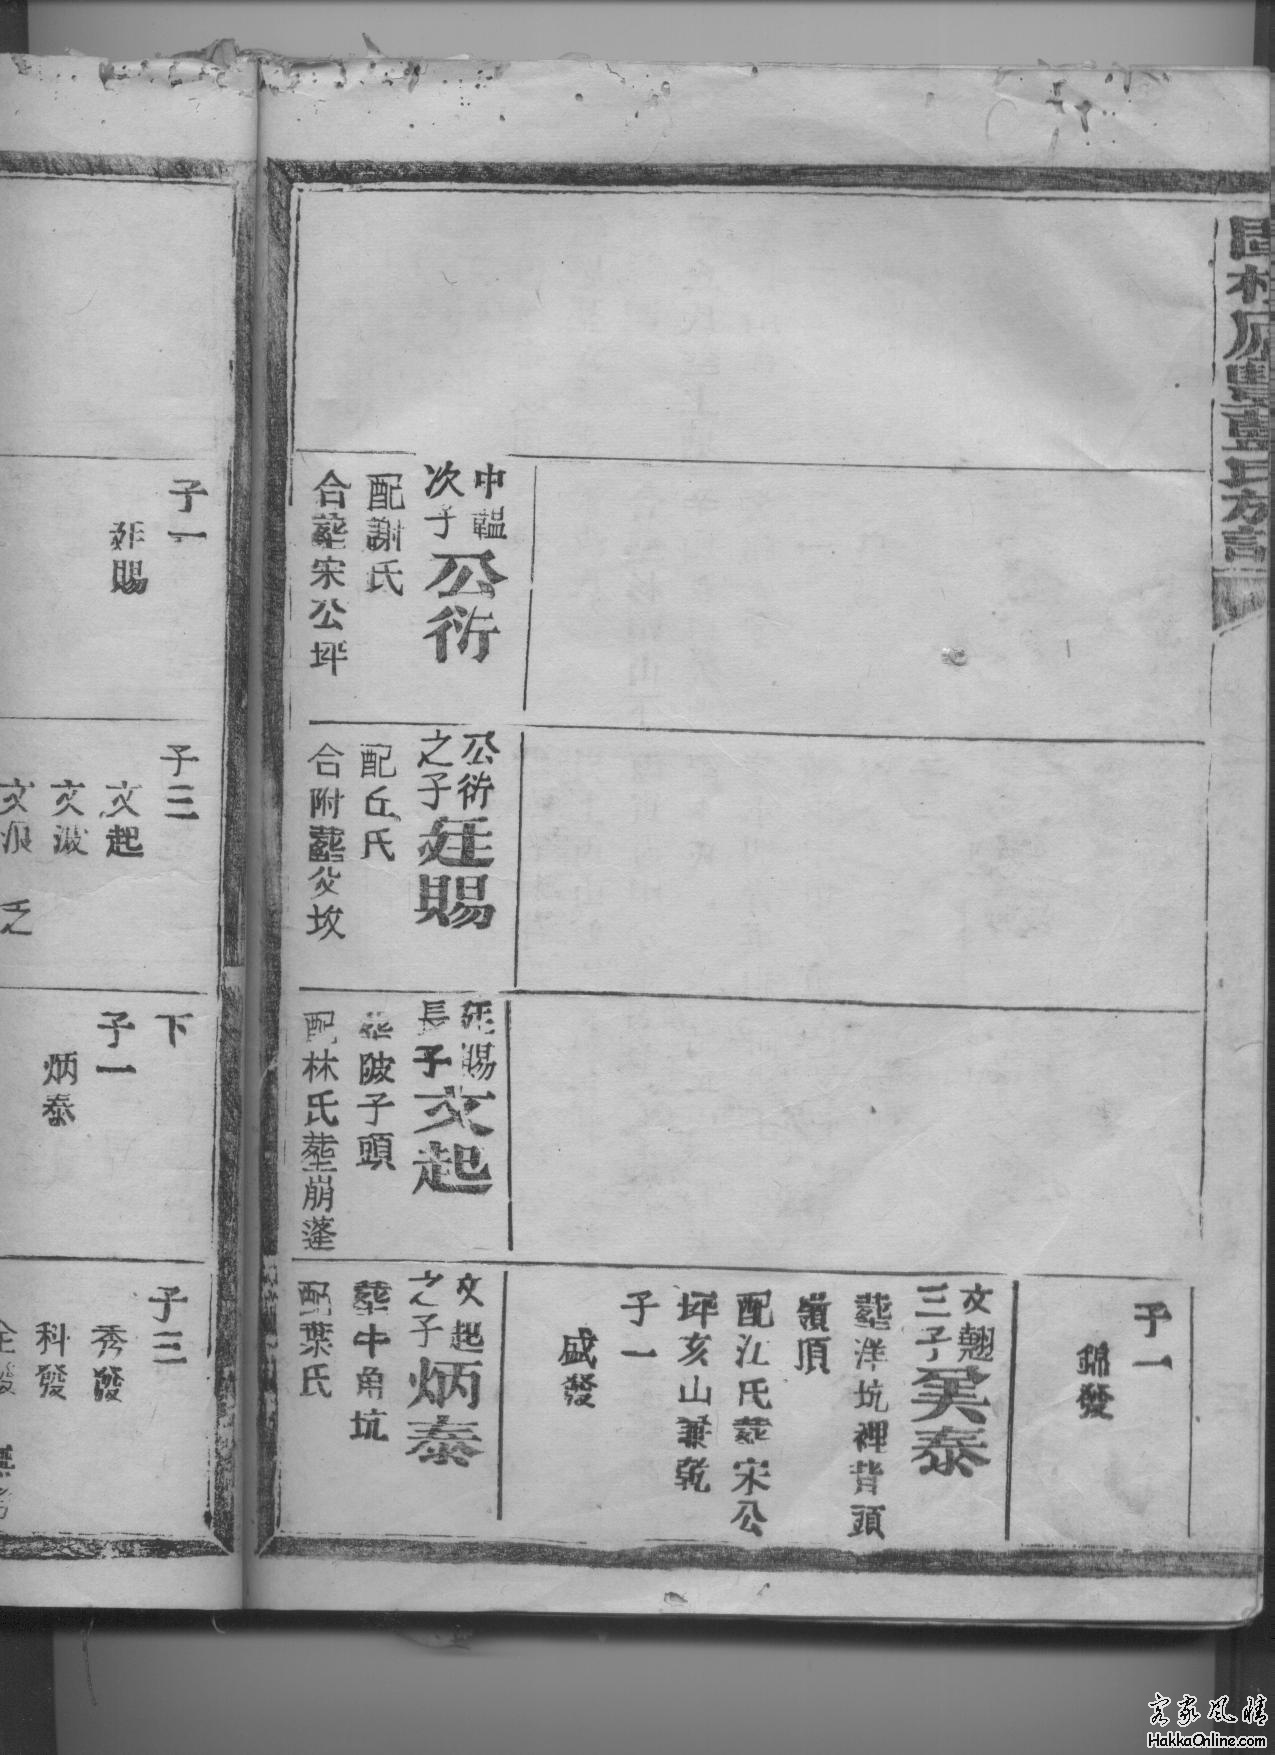 中韞
次子
公衍
配謝氏
合塟宋公坪
子一
廷賜
公衍
之子
廷賜
配丘氏
合附塟父坟
子三
文起
文波
廷賜
長子
文起
塟陂子頭
配林氏塟崩蓬
下
子一
炳泰
子一
錦發
文翹
三子
昊泰
塟洋坑裡背頭
嶺頂
配江氏塟宋公
坪亥山兼乾
子一
盛發
文起
之子
炳泰
塟中角坑
配葉氏
子三
秀發
科發
客家風情
HakkaOnline.com